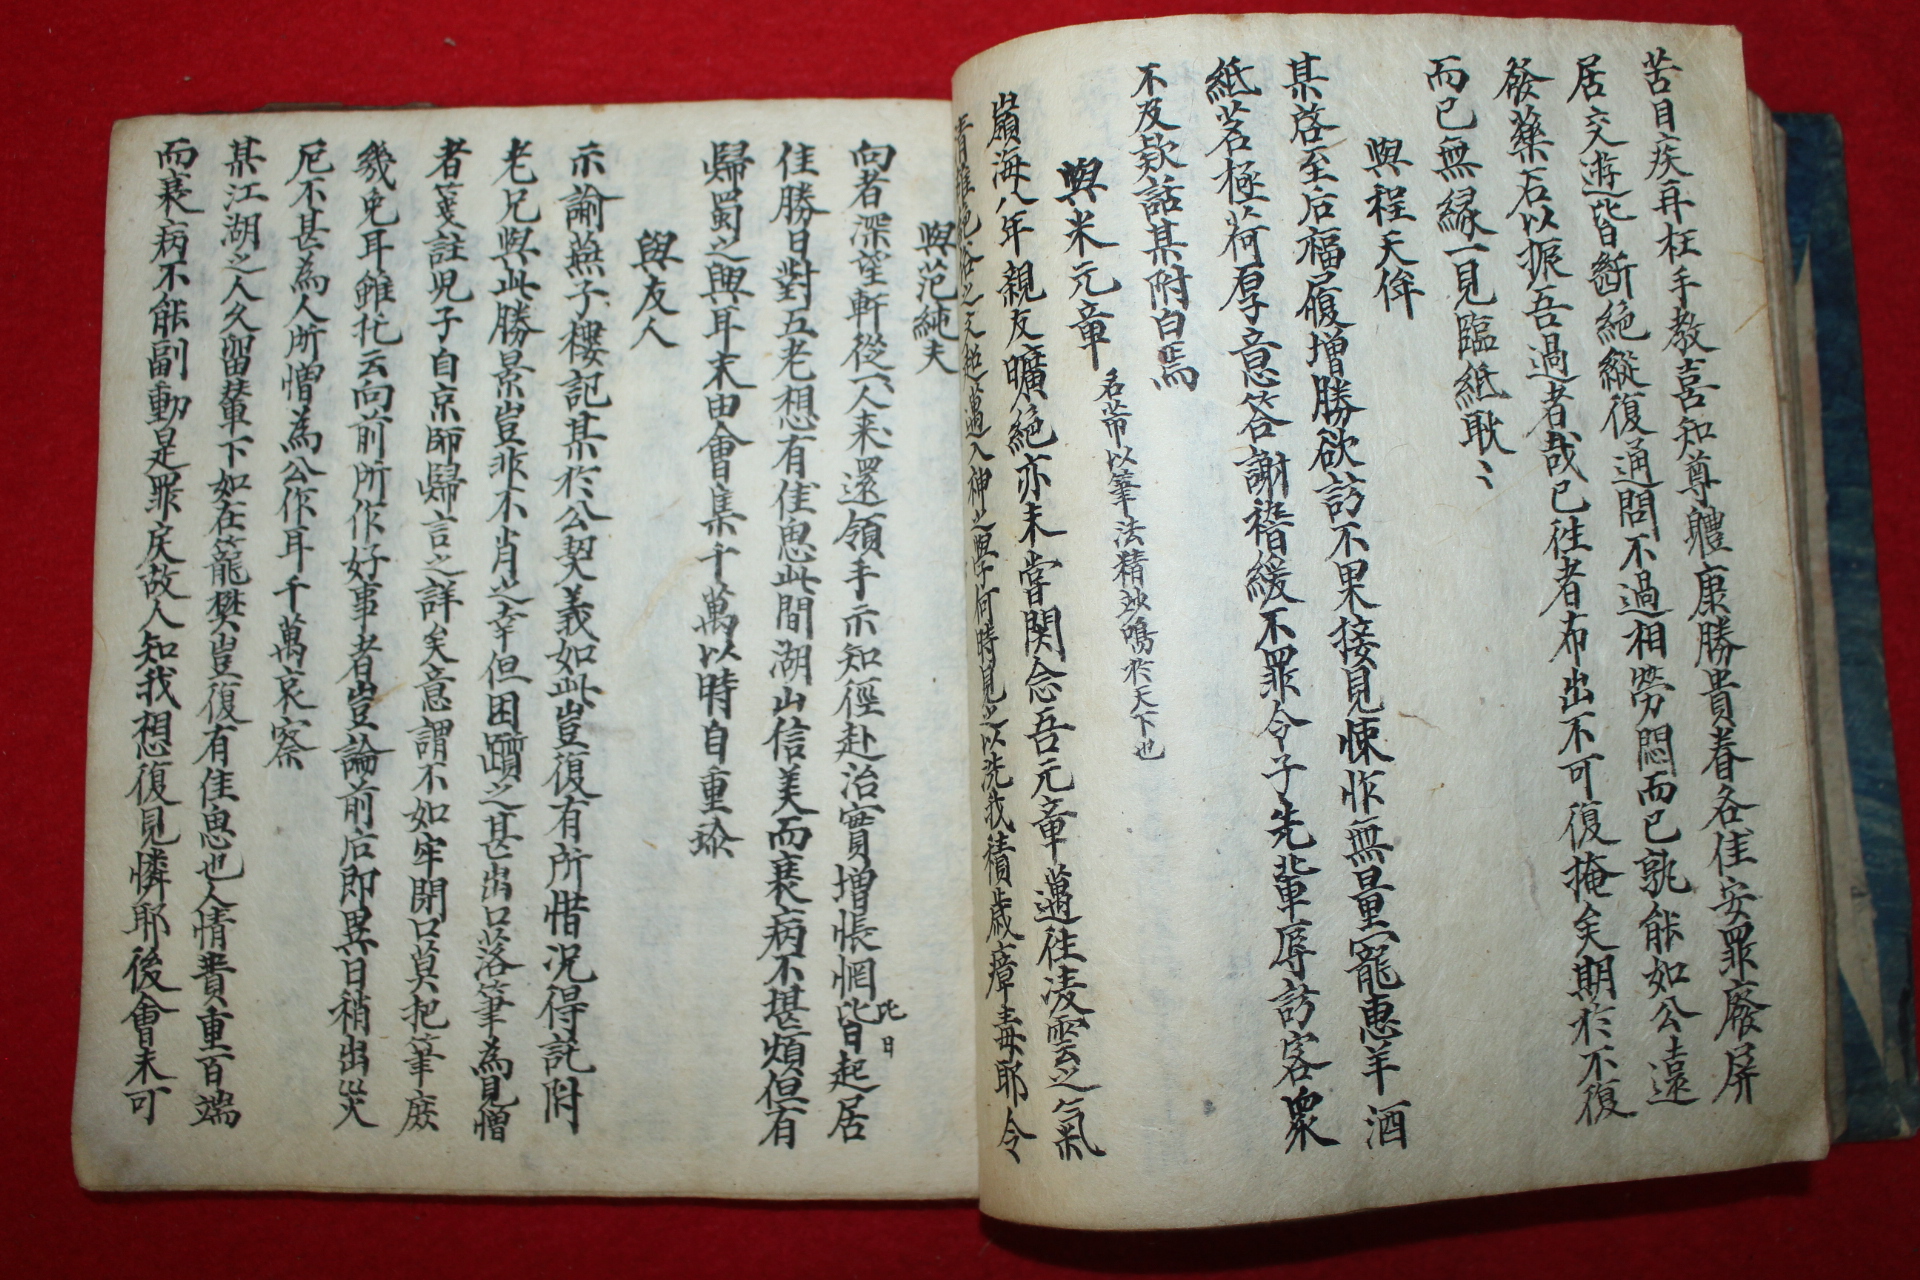 苦目疾再枉手教喜知尊軆康勝貴眷各佳安罪廢屏
居交遊皆斷絶縱復通問不過相勞悶而已孰能如公遠
發藥石以振吾過者哉已徃者布出不可復掩矣期於不復
而已無緣一見臨紙耿〻
與程天侔
某啓至后福履增勝欲訪不果接見悚怍無量寵惠羊酒
紙茗極荷厚意答謝稽緩不罪令子先輩辱訪客衆
不及欵話某附白焉
與米元章
名芾以筆法精妙鳴於天下也
嶺海八年親友曠絶亦未嘗関念吾元章邁徃凌雲之氣
清雄絶俗之文超邁入神之與字何時見之以洗我積歲瘴毒耶令
與范純夫
向者深望軒從一人来還領手示知徑赴治實增悵惘比日起居
比日
佳勝日對五老想有佳思此間湖山信美而衰病不堪煩但有
歸蜀之興耳末由會集千萬以時自重珎
與友人
示諭燕子樓記某於公契義如此豈復有所惜况得託附
老兄與此勝景豈非不肖之幸但困躓之甚出口落筆為見憎
者箋註児子自京師歸言之詳矣意謂不如牢閉口莫把筆庶
幾免耳雖托云向前所作好事者豈論前后即異日稍出災
厄不甚為人所憎為公作耳千萬哀察
某江湖之人久留輦下如在籠樊豈復有佳思也人情責重百端
而衰病不能副動是罪戾故人知我想復見憐耶後會未可